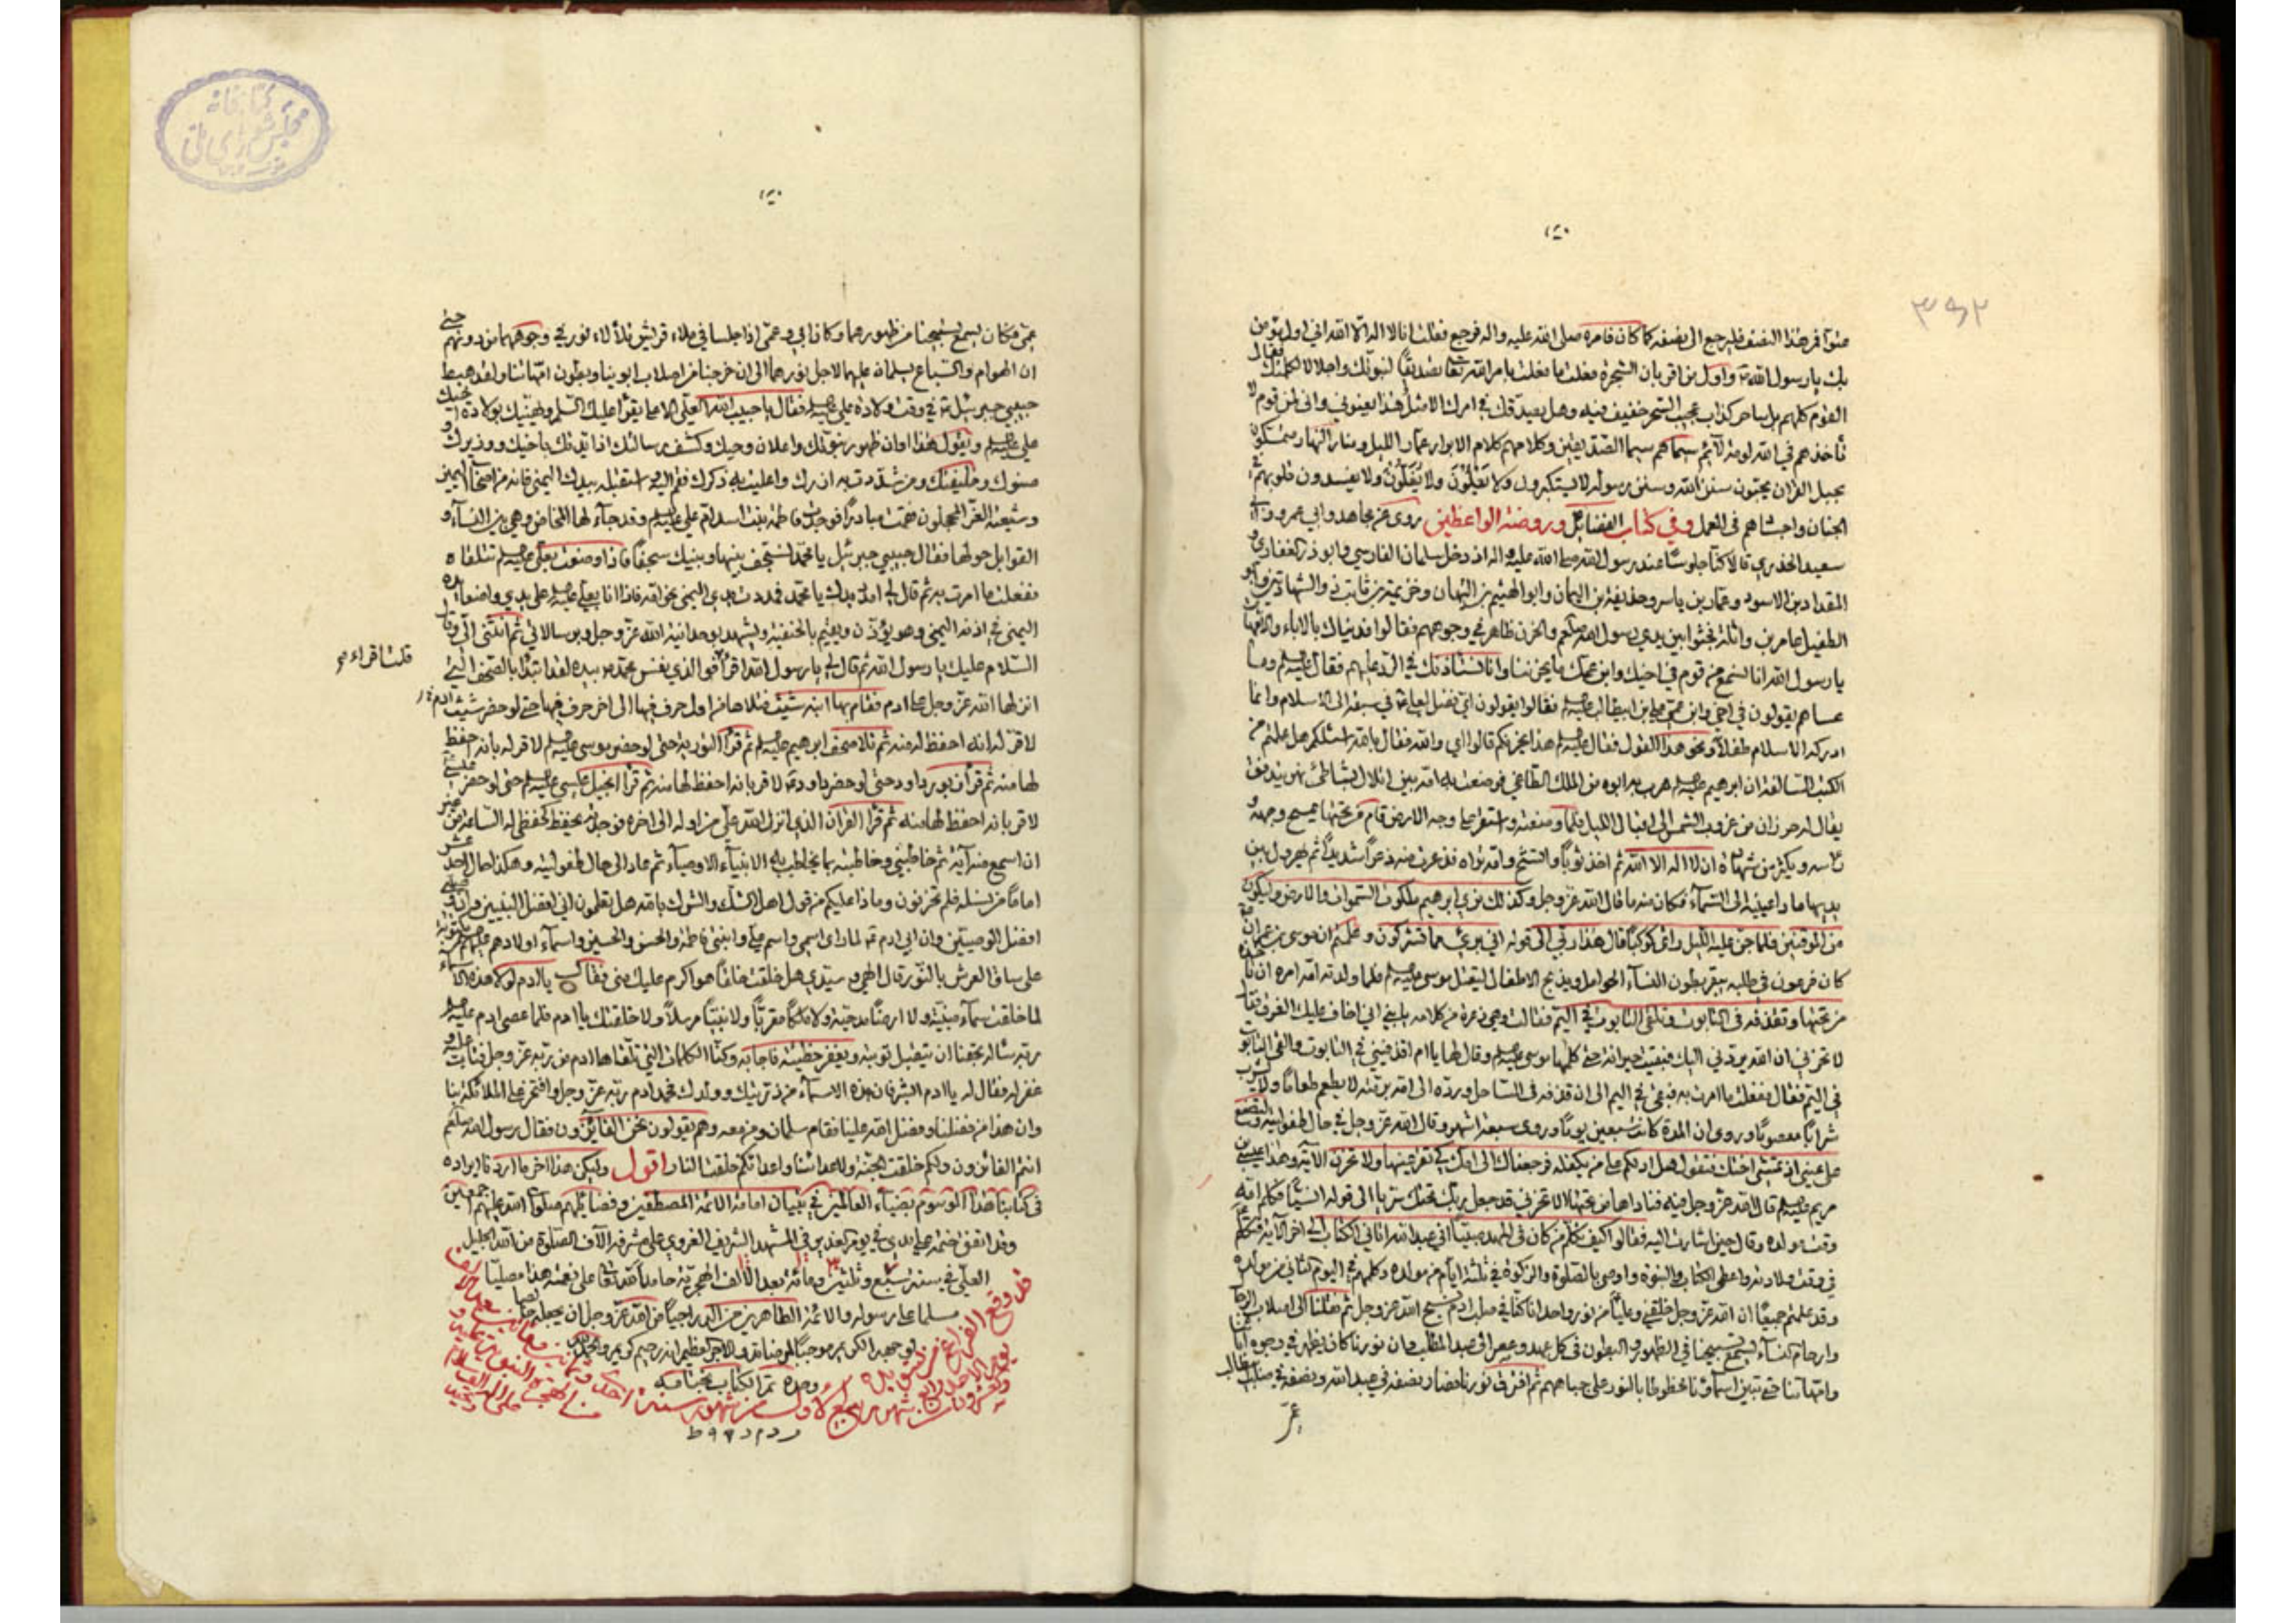 منوا فمر هذا النصف فليرجع الى نصفه كما كان فامره صلى الله عليه واله فرجع فقلت انا لا اله الا الله اني اول مؤمن
بك يا رسول الله واول من اقر بان الشجرة فعلت ما فعلت بامر الله تعا تصديقا لنبوتك واجلالا لكلمتك فقال
القوم كلهم بل ساحر كذاب عجيب السحر خفيف فيه وهل يصدقك في امرك الا مثل هذا يعنوني واني لمن قوم لا
تاخذهم في الله لومة لائم سيماهم سيما الصديقين وكلامهم كلام الابرار عمار الليل ومنار النهار متمسكون
بحبل القران يحيون سنن الله وسنن رسوله لا يستكبرون ولا يعلون ولا يغلون ولا يفسدون قلوبهم في
الجنان واجسادهم في العمل وفي كتاب الفضائل وروضة الواعظين روى عن مجاهد وابي عمرو وابي
سعيد الخدري قالا كنا جلوسا عند رسول الله صلى الله عليه واله اذ دخل سلمان الفارسي وابو ذر الغفاري و
المقداد بن الاسود وعمار بن ياسر وحذيفة بن اليمان وابو الهيثم بن التيهان وخزيمة بن ثابت ذو الشهادتين وابو
الطفيل عامر بن واثلة فجثوا بين يدي رسول الله صلعم والحزن ظاهر في وجوههم فقالوا فديناك بالاباء والامهات
يا رسول الله انا لنسمع من قوم في اخيك وابن عمك ما يحزننا وانا نستاذنك في الرد عليهم فقال وما
عساهم يقولون في اخي وابن عمي علي بن ابيطالب فقالوا يقولون اي فضل لعلي في سبقه الى الاسلام وانما
ادركه الاسلام طفلا ونحو هذا القول فقال هذا يحزنكم قالوا اي والله فقال بالله اسئلكم هل علمتم من
الكتب السالفة ان ابرهيم هرب به ابوه من الملك الطاغي فوضعت به امه بين اثلال بشاطئ نهر يتدفق
يقال له حرزان من غروب الشمس الى اقبال الليل فلما وضعته واستقر على وجه الارض قام من تحتها يمسح وجهه و
راسه ويكثر من شهادة ان لا اله الا الله ثم اخذ ثوبا واتشح وامه تراه فذعرت منه ذعرا شديدا ثم يهرول بين
يديها مادا عينيه الى السماء فكان منه ما قال الله عز وجل وكذلك نري ابرهيم ملكوت السموات والارض وليكون
من الموقنين فلما جن عليه الليل راى كوكبا قال هذا ربي الى قوله اني بري مما تشركون وعلمتم ان موسى بن عمران
كان فرعون في طلبه يبقر بطون النساء الحوامل ويذبح الاطفال ليقتل موسى فلما ولدته امه امره ان تا خذه
من تحتها وتقذفه في التابوت وتلقى التابوت في اليم فقالت وهي ذعرة من كلامه يا بني اني اخاف عليك الغرق فقال
لا تحزني ان الله يردني اليك فبقيت حيرانة حتى كلمها موسى وقال لها يا ام اقذفيني في التابوت والقى التابوت
في اليم فقال ففعلت ما امرت به فبقى في اليم الى ان قذفه في الساحل ورده الى امه برمته لا يطعم طعاما ولا يشرب
شرابا معصوما وروى ان المدة كانت سبعين يوما وروى سبعة اشهر وقال الله عز وجل في حال طفوليته ولتصنع
على عيني اذ تمشي اختك فتقول هل ادلكم على من يكفله فرجعناك الى امك كي تقر عينها ولا تحزن الاية وهذا عيسى بن
مريم قال الله عز وجل فيه فناداها من تحتها الا تحزني قد جعل ربك تحتك سريا الى قوله انسيا فكلم امه
وقت مولده وقال حين اشارت اليه فقالوا كيف نكلم من كان في المهد صبيا اني عبد الله اتاني الكتاب الى اخر الاية فتكلم
في وقت ولادته واعطى الكتاب والنبوة واوصى بالصلوة والزكوة في ثلثة ايام من مولده وكلمهم في اليوم الثاني من مولده
وقد علمتم جميعا ان الله عز وجل خلقني وعليا من نور واحد انا كنا في صلب ادم نسبح الله عز وجل ثم نقلنا الى اصلاب الرجال
وارحام النساء يسمع تسبيحنا في الظهور والبطون في كل عهد وعصر الى عبد المطلب وان نورنا كان يظهر في وجوه ابائنا
وامهاتنا حتى تبين اسماؤنا مخطوطة بالنور على جباههم ثم افترق نورنا فصار نصفه في عبد الله ونصفه في ابيطالب
عمي
عمي فكان يسمع تسبيحنا من ظهورهما وكان ابي وعمي اذا جلسا في ملاء قريش تلألاء نور في وجوههما من دونهم حتى
ان الهوام والسباع يسلمان عليهما لاجل نورهما الى ان خرجنا من اصلاب ابوينا وبطون امهاتنا ولقد هبط
حبيبي جبرئيل في وقت ولادة علي فقال يا حبيب الله العلي الاعلى يقرأ عليك السلم ويهنيك بولادة اخيك
علي ويقول هذا اوان ظهور نبوتك واعلان وحيك وكشف رسالتك اذ ايدتك باخيك ووزيرك و
صنوك وخليفتك ومن شددت به ازرك واعليت به ذكرك فقم اليه واستقبله بيدك اليمنى فانه من اصحاب اليمين
وشيعته الغر المحجلون فقمت مبادرا فوجدت فاطمة بنت اسد ام علي وقد جاء لها المخاض وهي بين النساء و
القوابل حولها فقال حبيبي جبرئيل يا محمد نسجف بينها وبينك سجفا فاذا وضعت بعلي تتلقاه
ففعلت ما امرت به ثم قال لي امدد يدك يا محمد فمددت يدي اليمنى نحو امه فاذا انا بعلي على يدي واضعا يده
اليمنى في اذنه اليمنى وهو يؤذن ويقيم بالحنيفية ويشهد بوحدانية الله عز وجل وبرسالاتي ثم انثنى الي وقال
السلام عليك يا رسول الله ثم قال لي يا رسول الله اقرأ فوالذي نفس محمد بيده لقد ابتدا بالصحف التي
قلت اقراء
انزلها الله عز وجل على ادم فقام بها ابنه شيث فتلاها من اول حرف فيها الى اخر حرف فيها حتى لو حضر شيث
لاقر له انه احفظ له منه ثم تلا صحف ابرهيم ثم قرأ التورية حتى لو حضر موسى لاقر له بانه احفظ
لها منه ثم قرأ زبور داود حتى لو حضر داود لاقر بانه احفظ لها منه ثم قرأ انجيل عيسى حتى لو حضر عيسى
لاقر بانه احفظ لها منه ثم قرأ القران الذي انزل الله علي من اوله الى اخره فوجدته يحفظ كحفظي له الساعة من غير
ان اسمع منه آية ثم خاطبني وخاطبته بما يخاطب به الانبياء الاوصياء ثم عاد الى حال طفوليته وهكذا احد عشر
اماما من نسله فلم تحزنون وماذا عليكم من قول اهل الشك والشرك بالله هل تعلمون اني افضل النبيين وان وصيي
افضل الوصيين وان ابي ادم لما راى اسمي واسم علي وابنتي فاطمة والحسن والحسين واسماء اولادهم مكتوبة
على ساق العرش بالنور قال الهي وسيدي هل خلقت خلقا هو اكرم عليك مني فقال يا ادم لولا هذه الاسماء
لما خلقت سماء مبنية ولا ارضا مدحية ولا ملكا مقربا ولا نبيا مرسلا ولا خلقتك يا ادم فلما عصى ادم
ربه سأله بحقنا ان يتقبل توبته ويغفر خطيئته فاجابه وكنا الكلمات التي تلقاها ادم من ربه عز وجل فتاب عليه و
غفر له فقال له يا ادم ابشر فان هذه الاسماء من ذريتك وولدك فحمد ادم ربه عز وجل وافتخر على الملائكة بنا
وان هذا من فضلنا وفضل الله علينا فقام سلمان ومن معه وهم يقولون نحن الفائزون فقال رسول الله صلعم
انتم الفائزون ولكم خلقت الجنة ولاعدائنا واعدائكم خلقت النار اقول وليكن هذا اخر ما اردنا ايراده
في كتابنا هذا الموسوم بضياء العالمين في بيان امامة الائمة المصطفين وفضايلهم صلوات الله عليهم اجمعين
وقد اتفق ختمه على يدي في يوم الغدير في المشهد الشريف الغروي على مشرفه آلاف الصلوة من الله الجليل
العلي في سنة سبع وثلثين ومائة بعد الالف الهجرية حامدا لله تعا على نعمه هذا مصليا
مسلما على رسوله والائمة الطاهرين من اله راجيا من الله عز وجل ان يجعله خالصا
لوجهه الكريم موجبا لمرضاته والاجر العظيم انه رحيم كريم والحمد لله
وحده تم الكتاب بختامه
قد وقع الفراغ من